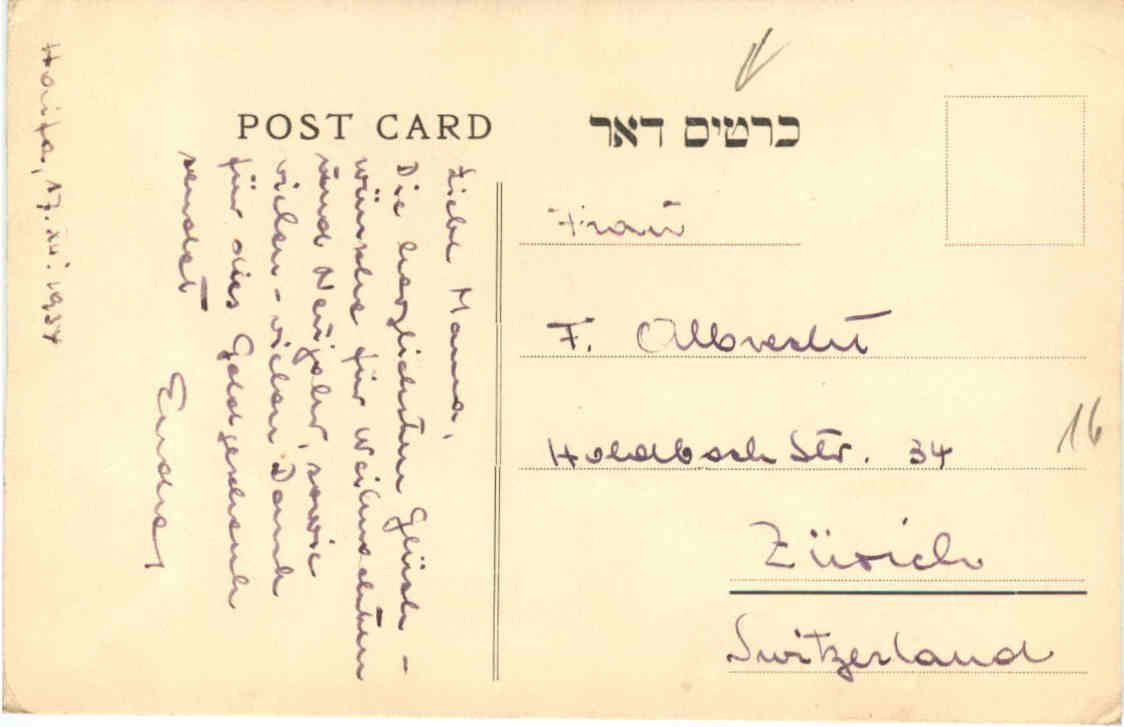 POST CARD
כרטיס דאר
Haifa, 17. XII. 1937
Liebe Mama,
Die herzlichsten Glück-
wünsche für Weihnachten
und Neujahr, sowie
vielen-vielen Dank
für das Geldgeschenk
sendet
Frau
F. Albrecht
Holdbach Str. 34
Zürich
Switzerland
16